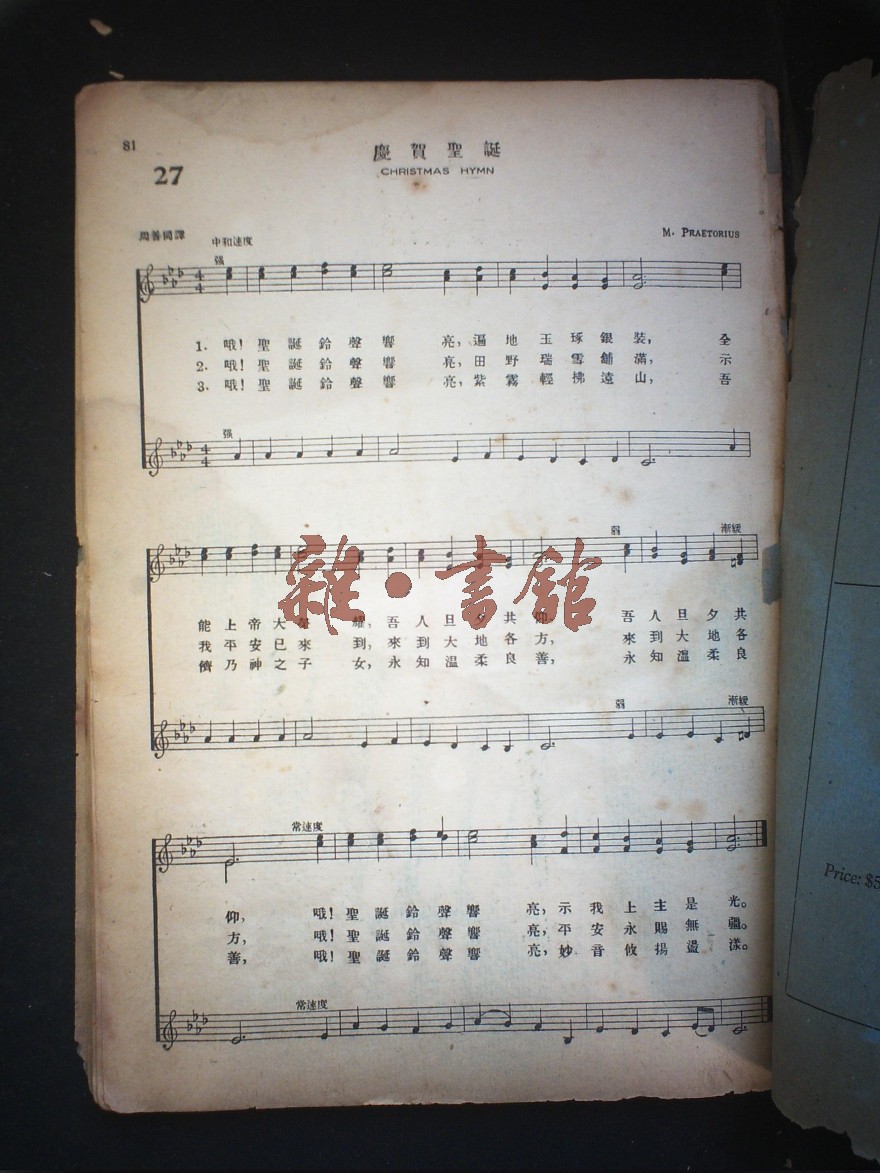 81
27
慶賀聖誕
CHRISTMAS HYMN
中和速度
M. PRAETORIUS
强
1. 哦！聖誕鈴聲響亮，遍地玉琢銀裝，全
2. 哦！聖誕鈴聲響亮，田野瑞雪舖滿，示
3. 哦！聖誕鈴聲響亮，紫霧輕拂遠山，吾
强
弱 漸緩
雜·書館
能上帝大 耀，吾人旦夕共仰 吾人旦夕共
我平安已來到，來到大地各方，來到大地各
儕乃神之子女，永知溫柔良善，永知溫柔良
弱 漸緩
常速度
仰，哦！聖誕鈴聲響亮，示我上主是光。
方，哦！聖誕鈴聲響亮，平安永賜無疆。
善，哦！聖誕鈴聲響亮，妙音攸揚盪漾。
常速度
Price: $5